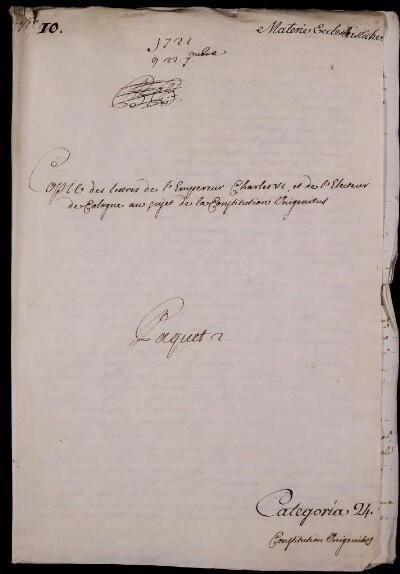 10.
Materie Ecclesiastiche
1721
9 22. 7mbre
Copie des lettres de l'Empereur Charles VI. et de l'Electeur
de Cologne au sujet de la Constitution Unigenitus
Paquet 2
Categoria 24.
Constitution Unigenitus